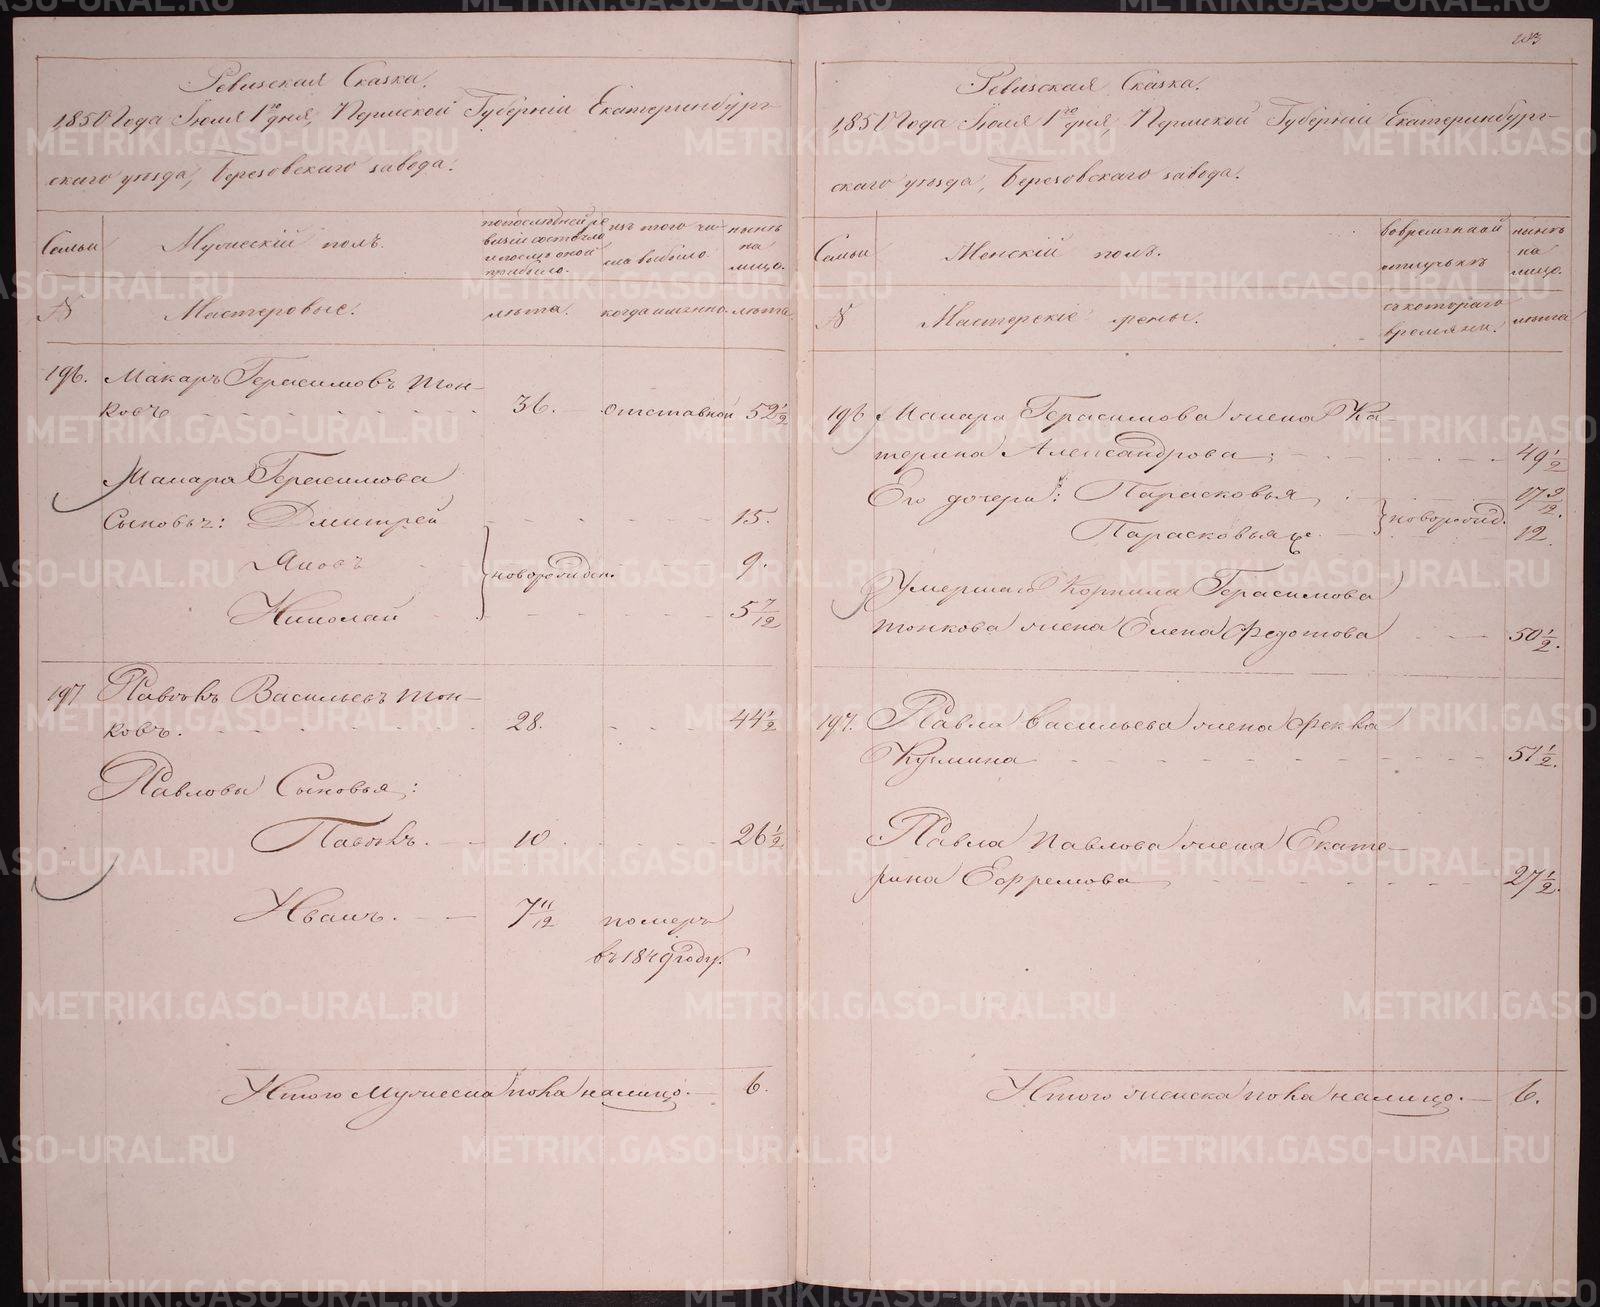 203
Ревизская Сказка.
1850 Года Iюля 1го дня, Пермской Губернiи Екатеринбург-
скаго уѣзда, Березовскаго завода.
Семьи
Мужескiй полъ.
по последней ре
визiи состояло
и после оной
прибыло.
изъ того чи-
сла выбыло
нынѣ
на
лицо.
№
Мастеровые.
лѣта.
когда именно
лѣта.
196.
Макаръ Герасимовъ Тон-
ковъ
36.
отставной
52 1/2
Макара Герасимова
Сыновья: Дмитрей
15.
Яковъ
новорожден.
9.
Николай
5 7/12
197
Павелъ Васильевъ Тон-
ковъ.
28.
44 1/2
Павловы Сыновья:
Павелъ.
10
26 1/2
Иванъ.
7 11/12
померъ
въ 1849 году.
Итого Мужеска пола налицо.
6.
Ревизская Сказка.
1850 Года Iюля 1го дня, Пермской Губернiи Екатеринбург-
скаго уѣзда, Березовскаго завода.
Семьи
Женскiй полъ.
во временной
отлучькѣ
нынѣ
на
лицо.
№
Мастерскiе жены.
съ котораго
времяни.
лѣта
196
Макара Герасимова жена Ка-
терина Александрова;
49 1/2
Его дочери: Парасковья
17 9/12
Парасковья же
новорожд.
12
Умершаго Корнила Герасимова
Тонкова жена Елена Федотова
50 1/2.
197.
Павла Васильева жена Фекла
Кузмина
51 1/2.
Павла Павлова жена Екате-
рина Ефремова
27 1/2.
Итого женска пола налицо.
6.
METRIKI.GASO-URAL.RU